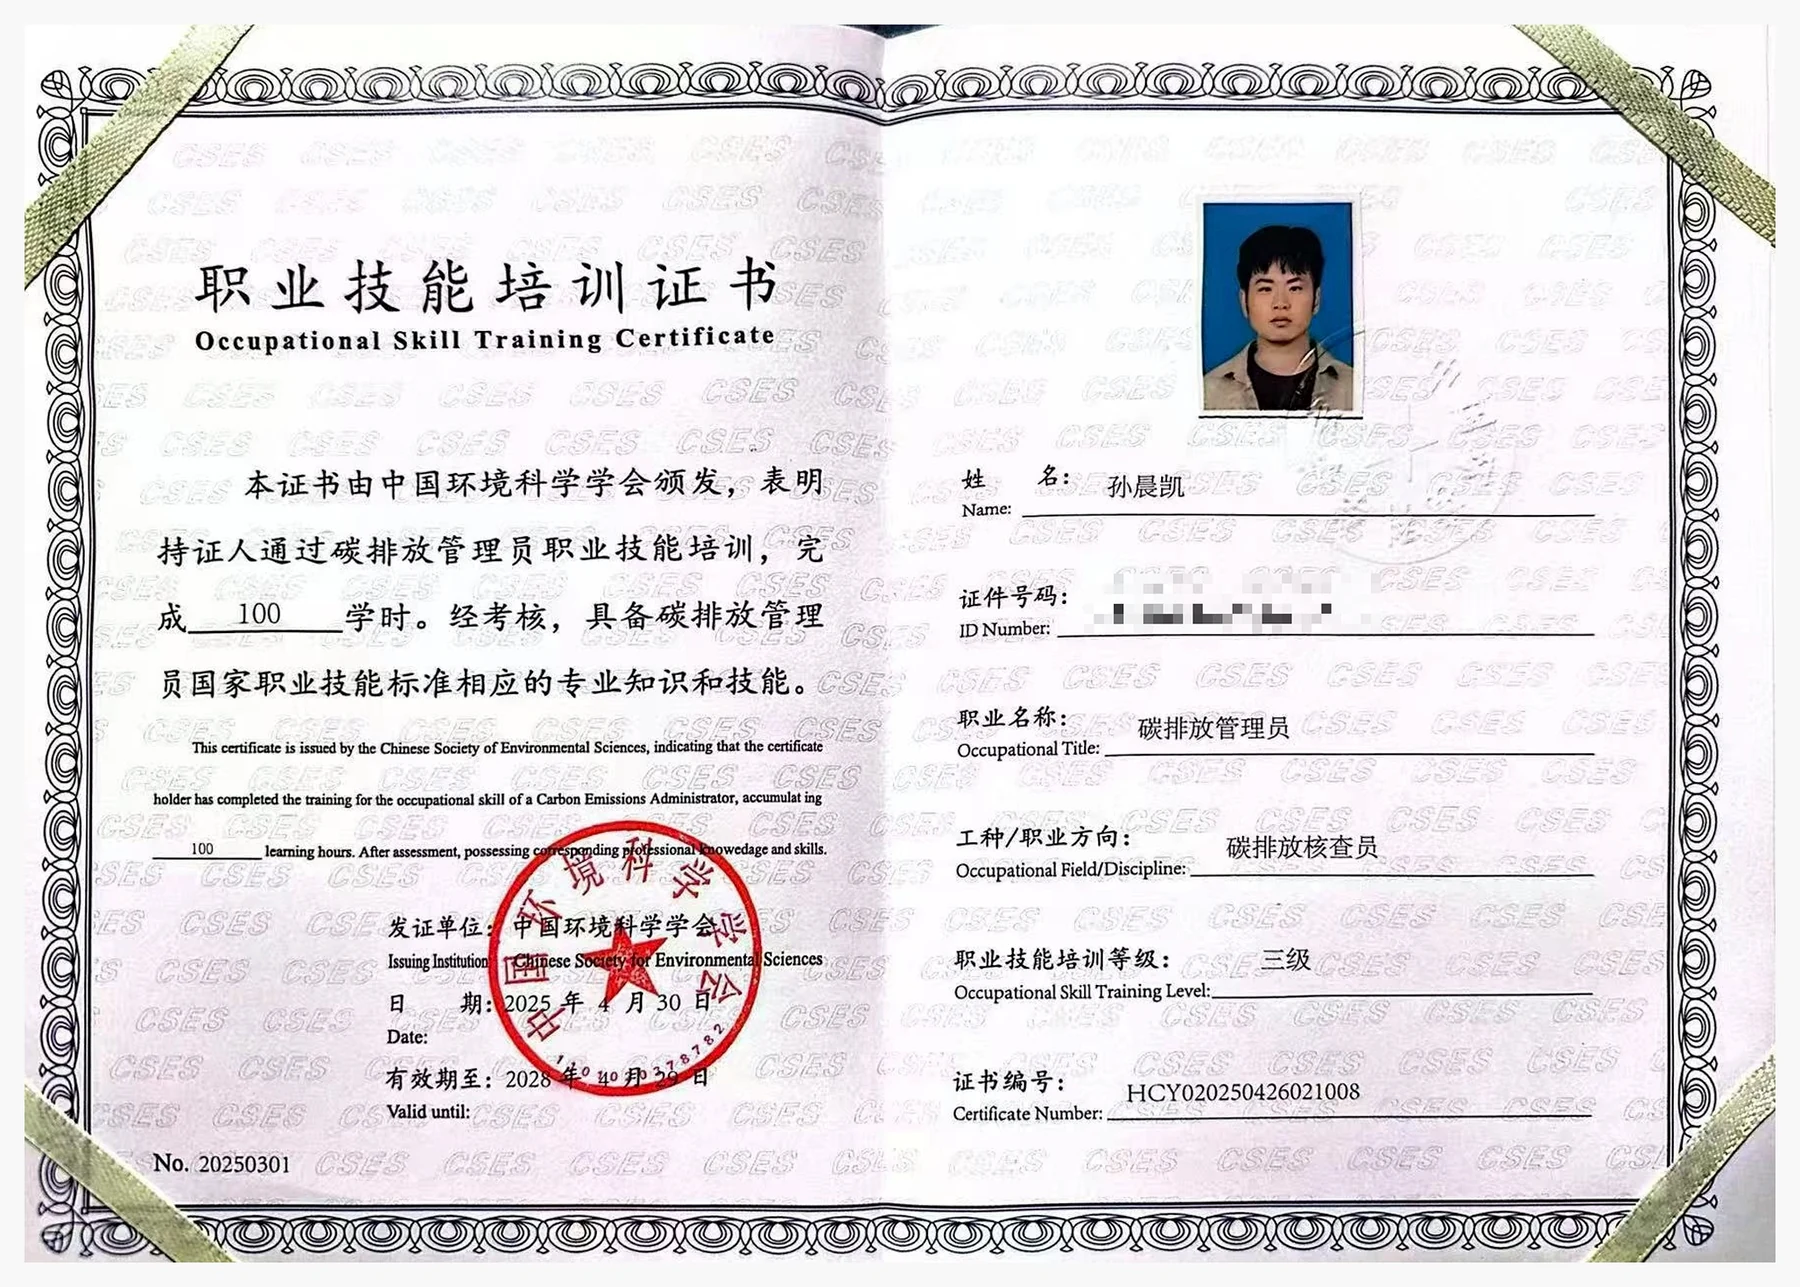 职业技能培训证书
Occupational Skill Training Certificate
本证书由中国环境科学学会颁发，表明
持证人通过碳排放管理员职业技能培训，完
成 100 学时。经考核，具备碳排放管理
员国家职业技能标准相应的专业知识和技能。
This certificate is issued by the Chinese Society of Environmental Sciences, indicating that the certificate
holder has completed the training for the occupational skill of a Carbon Emissions Administrator, accumulat ing
100 learning hours. After assessment, possessing corresponding professional knowedage and skills.
发证单位：中国环境科学学会
Issuing Institution Chinese Society for Environmental Sciences
日 期：2025 年 4 月 30 日
Date:
有效期至：2028 年 4 月 29 日
Valid until:
中国环境科学学会
No. 20250301
姓 名：孙晨凯
Name:
证件号码：
ID Number:
职业名称：碳排放管理员
Occupational Title:
工种/职业方向：碳排放核查员
Occupational Field/Discipline:
职业技能培训等级：三级
Occupational Skill Training Level:
证书编号：HCY020250426021008
Certificate Number:
CSES